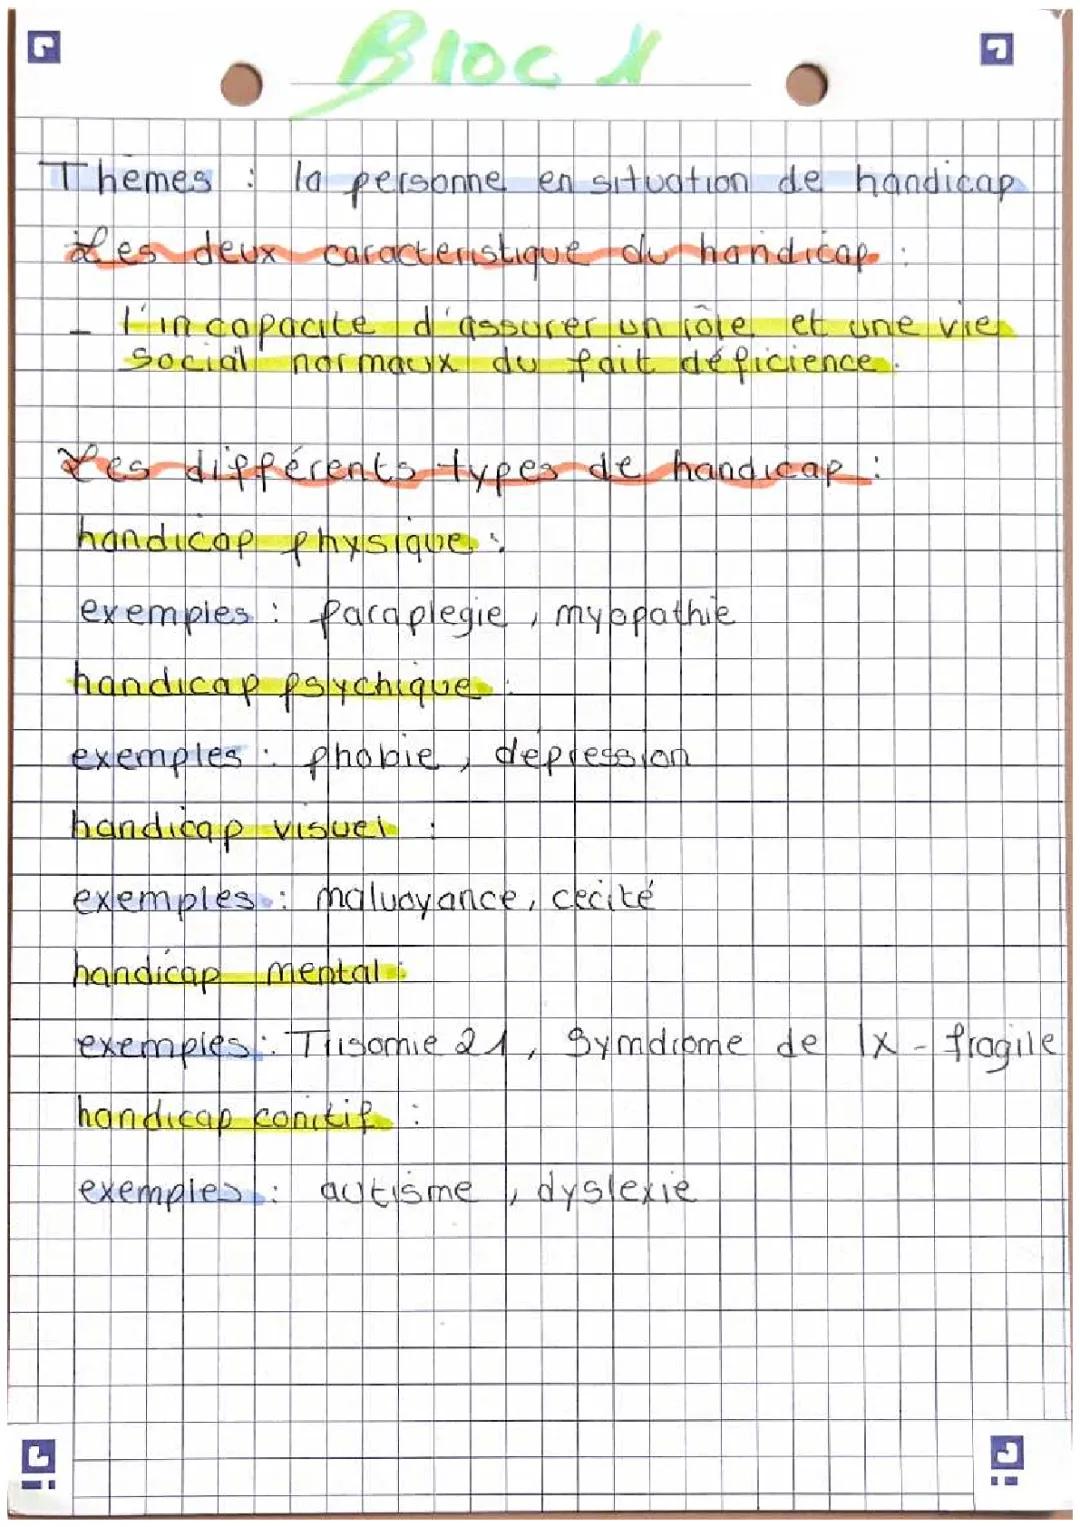 Bloc 1
Thèmes : la personne en situation de handicap
Les deux caracteristique du handicap :
- l'incapacité d'assurer un rôle et une vie
social normaux du fait déficience.
Les différents types de handicap :
handicap physique :
exemples : paraplegie, myopathie
handicap psychique :
exemples : phobie, dépression
handicap visuel :
exemples : malvoyance, cécité
handicap mental :
exemples : Trisomie 21, Symdrome de lX - fragile
handicap conitif :
exemples : autisme, dyslexie